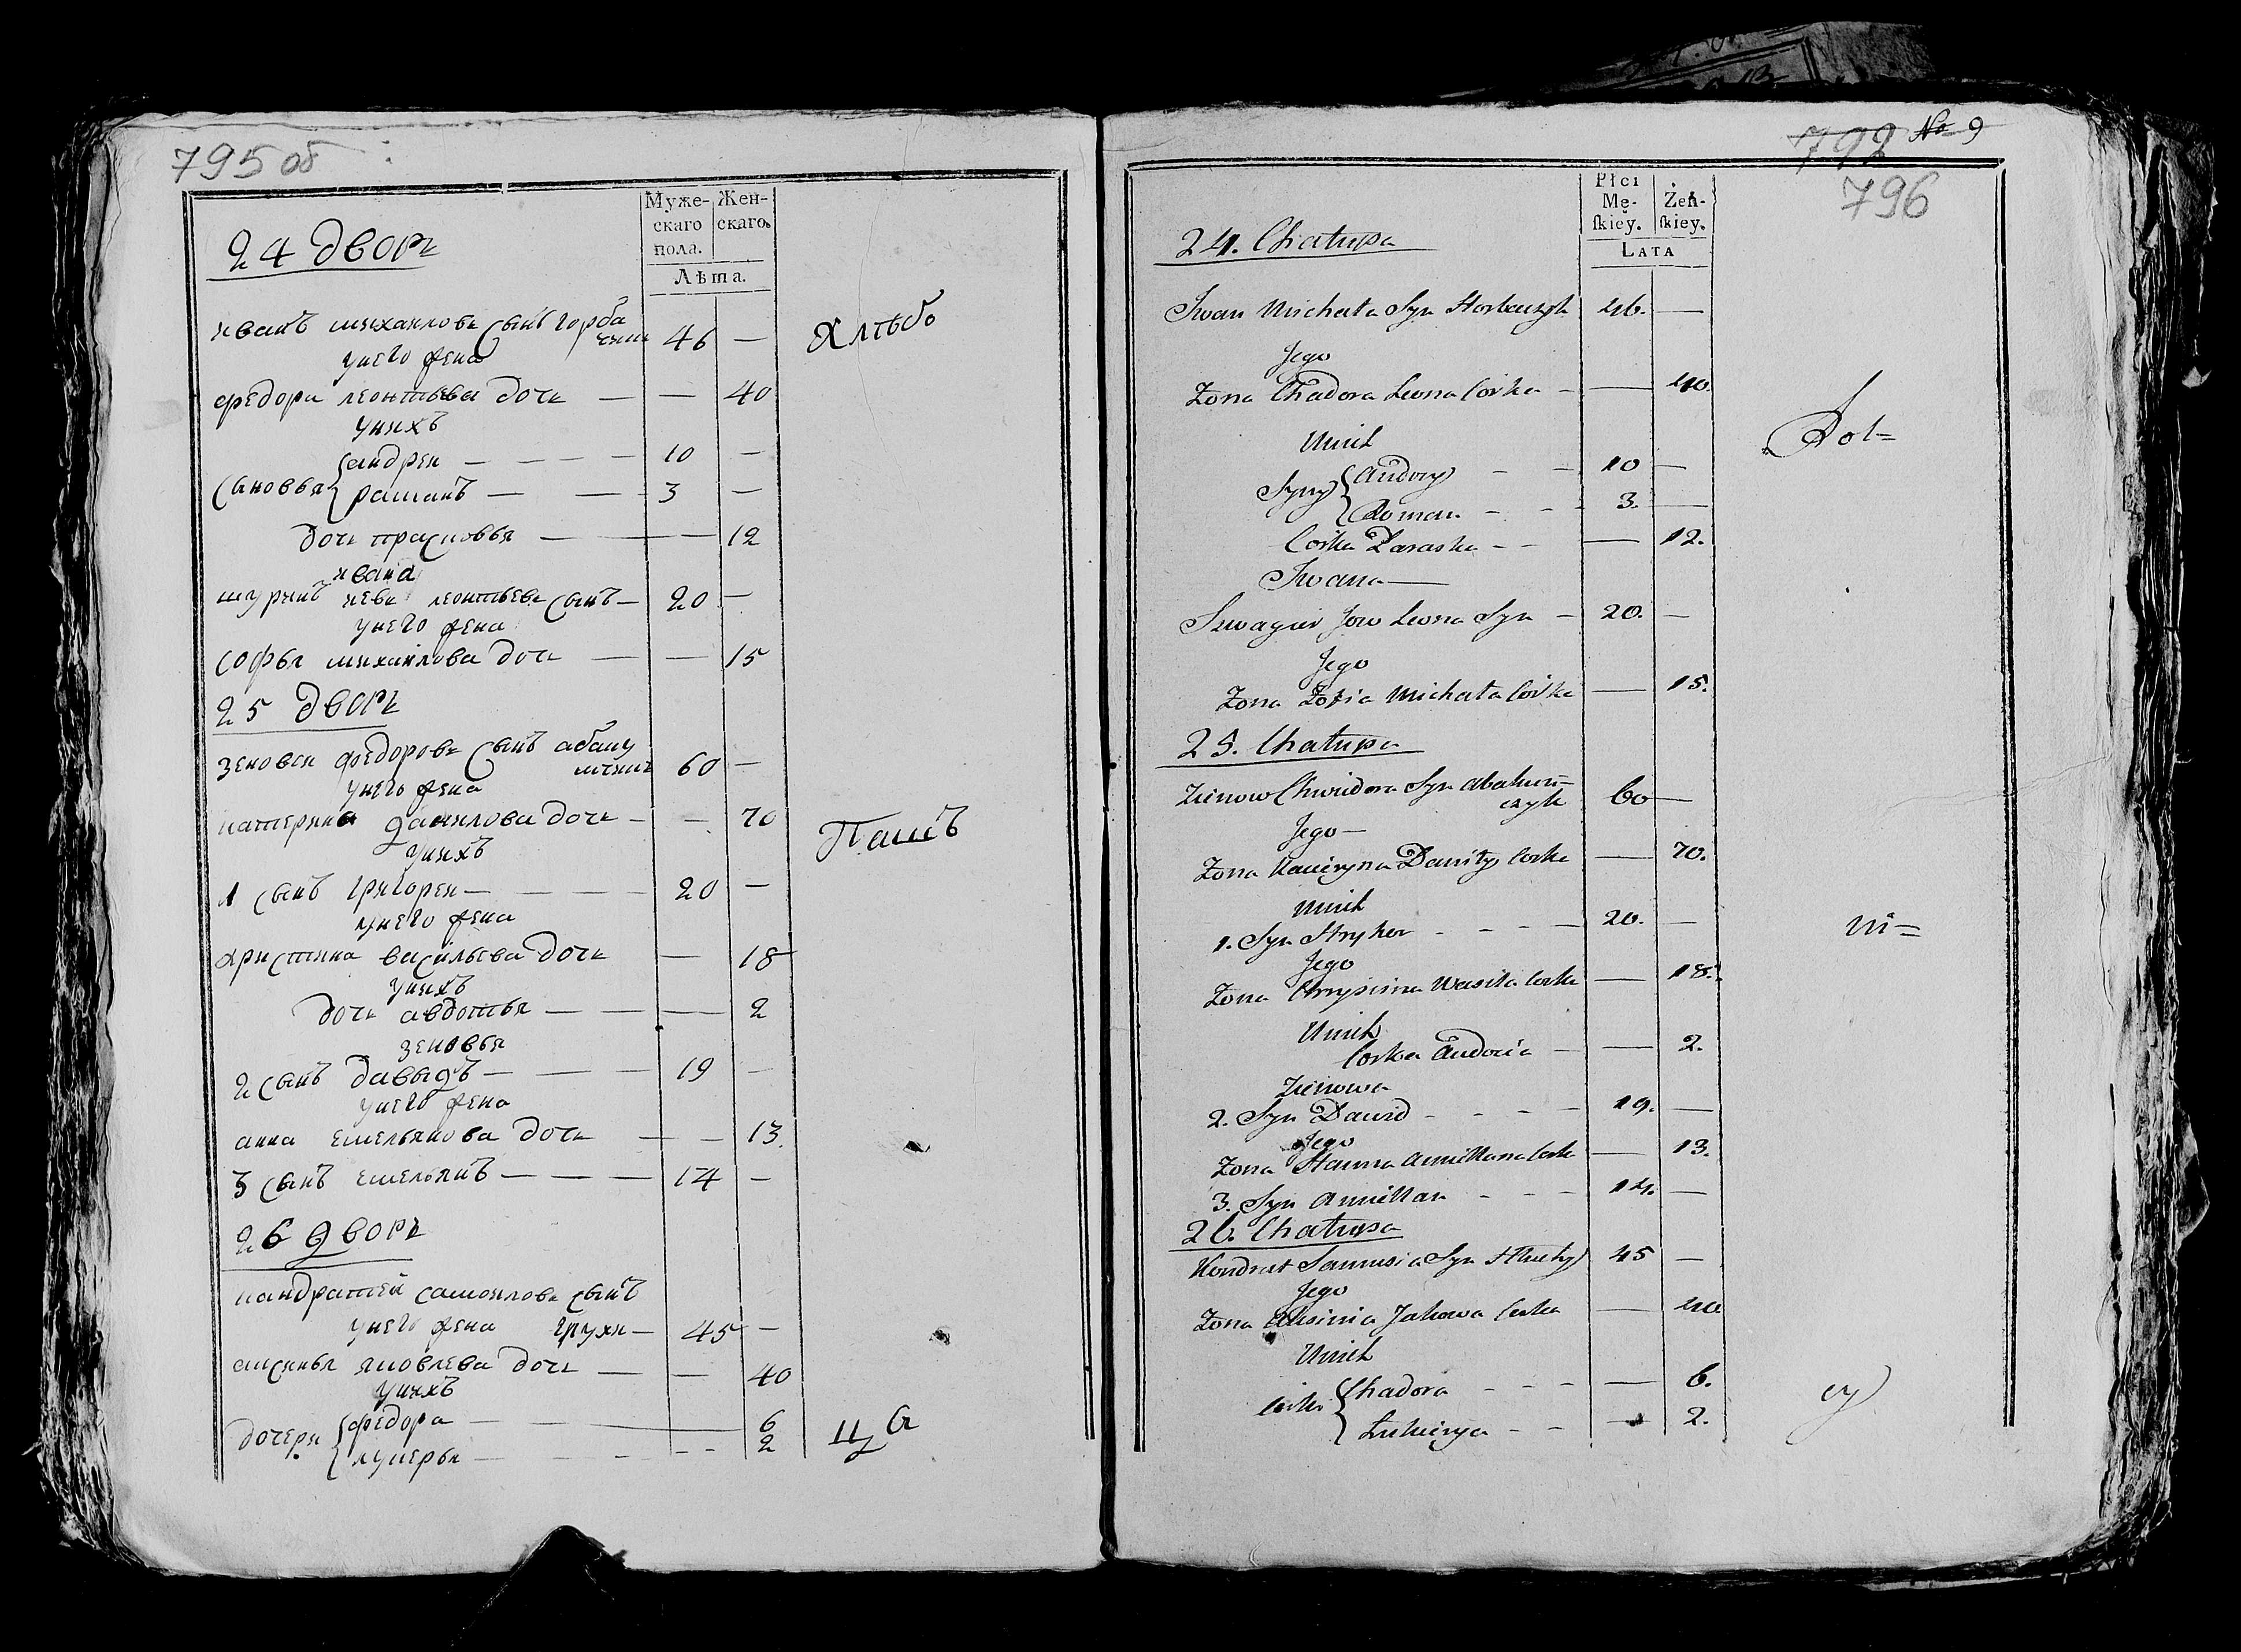 795 об
Муже-
скаго
пола.
Жен-
скаго.
Лѣта.
24 дворъ
иванъ михаилова сынъ горба
чикъ 46 —
унего жена
федора леонтьева дочь — — 40
унихъ
сановья { андреи — — — 10 —
раманъ — — 3 —
дочь прасковья — — — 12
ивана
шуринъ иевъ леонтьевъ сынъ — 20 —
унего жена
софья михаилова дочь — — 15
25 дворъ
зеновеи федоровъ сынъ абаку
мчикъ 60 —
унего жена
катерина данилова дочь — — 70
унихъ
1 сынъ григореи — — — 20 —
унего жена
христина васильева дочь — 18
унихъ
дочь авдотья — — — 2
зеновья
2 сынъ давыдъ — — — 19 —
унего жена
анна емельянова дочь — — 13.
3 сынъ емельянъ — — — 14 —
26 дворъ
кандратей самоилова сынъ
унего жена грухи — 45 —
аксинья яковлева дочь — — 40
унихъ
дочери { федора — — 6
лукерья — — — 2
Хлѣбо
Пашъ
ца
792 No 9
796
Płci
Mę-
ſkiey.
Żeń-
ſkiey.
LATA
24. Chałupa
Iwan Michała Syn Horbaczyk 46. —
Jego
Zona Chadora Leona Corka — — 40.
Unich
Syny { Andrey — — 10 —
Roman — — 3. —
Corka Paraska — — — 12.
Iwana —
Szwagier Jow Leona Syn — 20. —
Jego
Zona Zofia Michała Corka — 15.
25. Chałupa
Zienow Chwiedora Syn Abakum=
czyk 60 —
Jego —
Zona Kacieryna Daniły Corka — 70.
Unich
1. Syn Hryhor — — — 20. —
Jego
Zona Chrysina Wasila Corka — 18.
Unich
Corka Audocia — — 2.
Zienowa
2. Syn Dawid — — — 19. —
Jego
Zona Hanna Amillana Corka — 13.
3. Syn Amillan — — — 14. —
26. Chałupa
Kondrat Samusia Syn Hłuchy 45 —
Jego
Zona Aksinia Jakowa Corka — 40
Unich
Corki { Chadora — — — — 6.
Łukierya — — — 2.
Rol=
ni=
cy